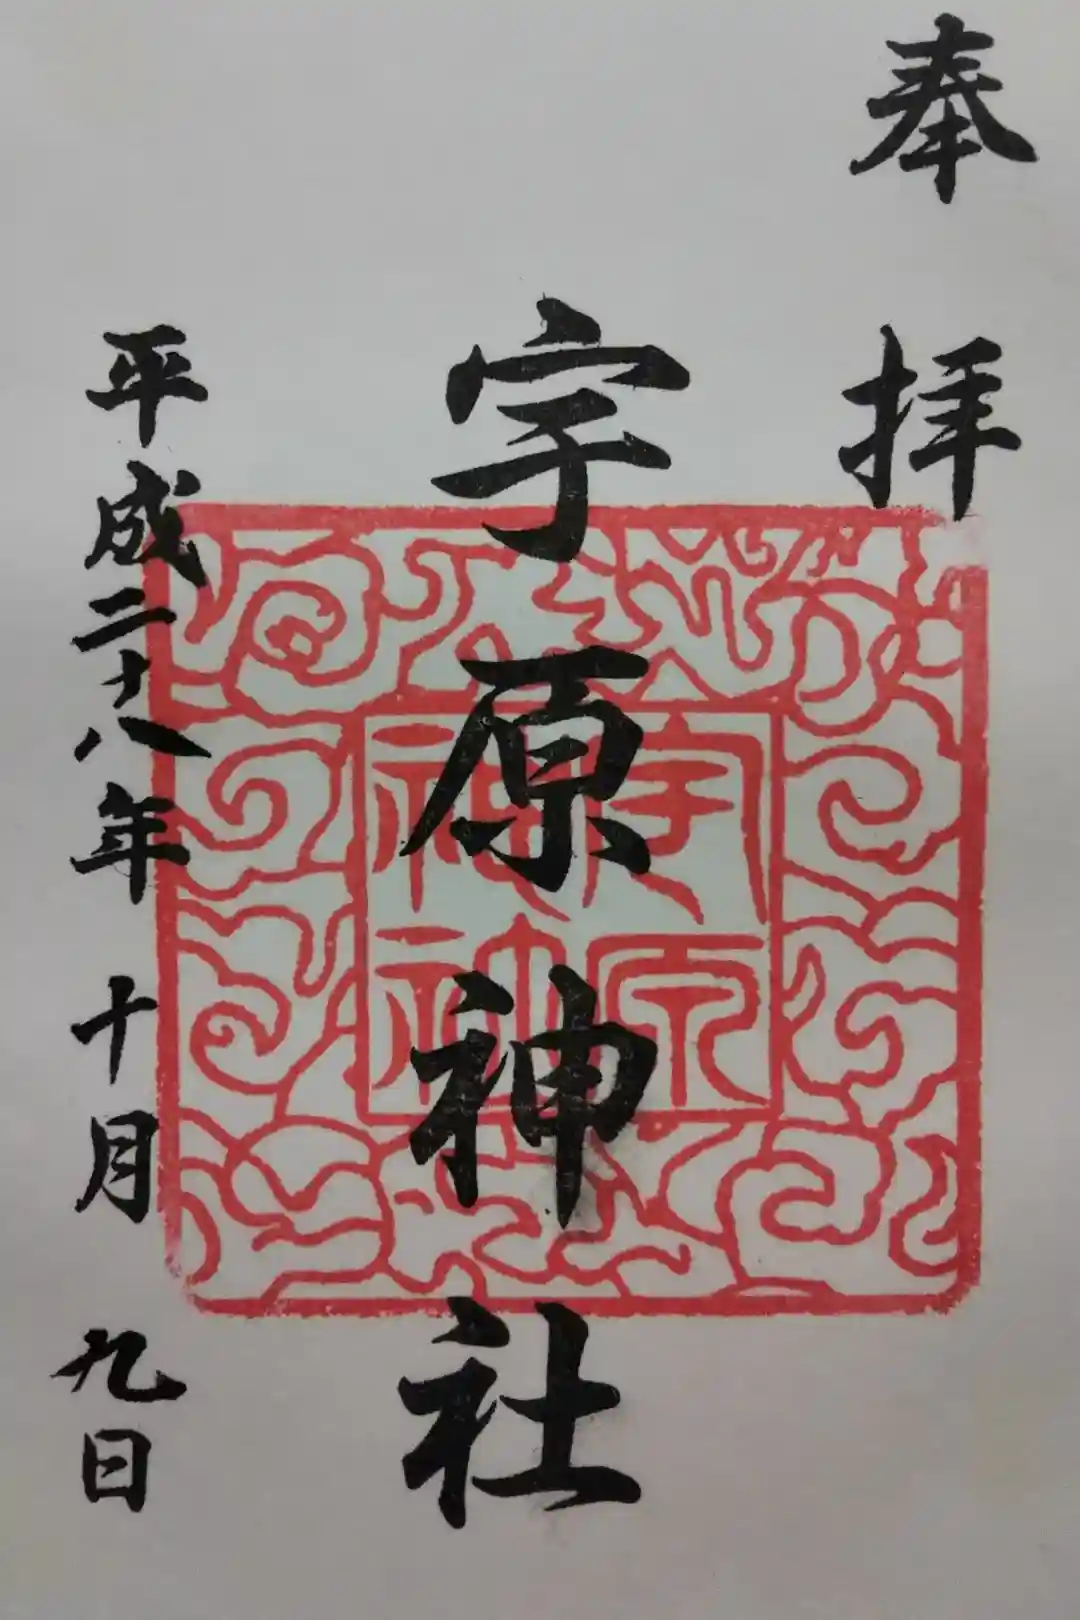 奉拝
宇原神社
平成二十八年 十月 九日
宇原
神社